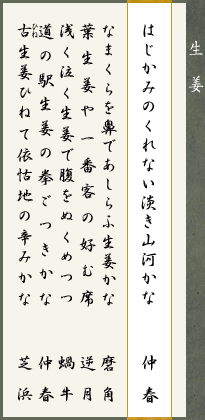 生姜
はじかみのくれない淡き山河かな 仲春
なまくらを鼻であしらふ生姜かな 磨角
葉生姜や一番客の好む席 逆月
浅く泣く生姜で腹をぬくめつつ 蝸牛
道の駅生姜の拳ごつきかな 仲春
古生姜ひねて依怙地の辛みかな 芝浜
ひね